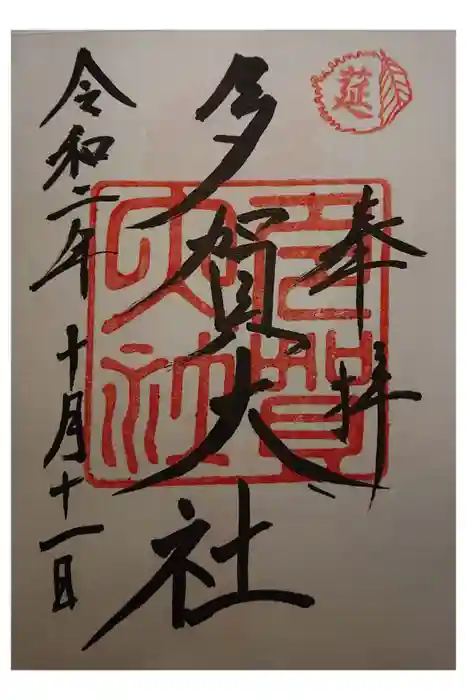 莚
奉拝
多賀大社
多賀大社
令和二年 十月十一日